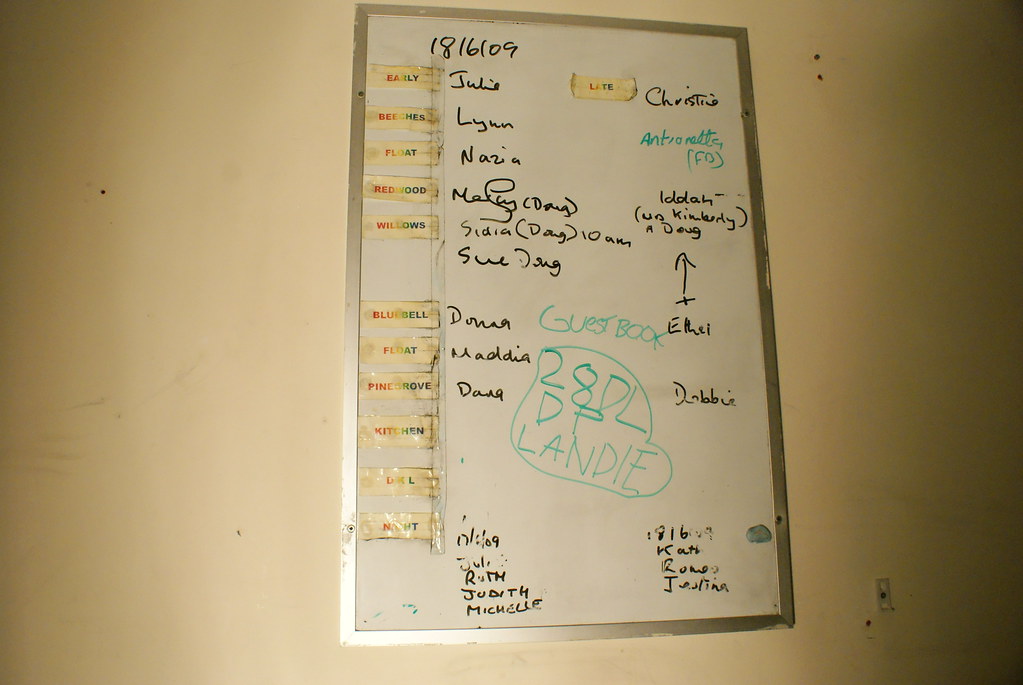 18/6/09
EARLY Julie LATE Christie
BEECHES Lynn
Antionette
(FD)
FLOAT Nazia
REDWOOD (Doug) Iddah
(urs Kimberly)
WILLOWS Sidia (Doug) 10am Doug
Sue Doug
BLUEBELL Donna GUEST BOOK
FLOAT Maddia
28DL
PINEGROVE Dana Debbie
DP
KITCHEN
LANDIE
NIGHT
17/6/09 18/6/09
RUTH Romeo
JUDITH
MICHELLE